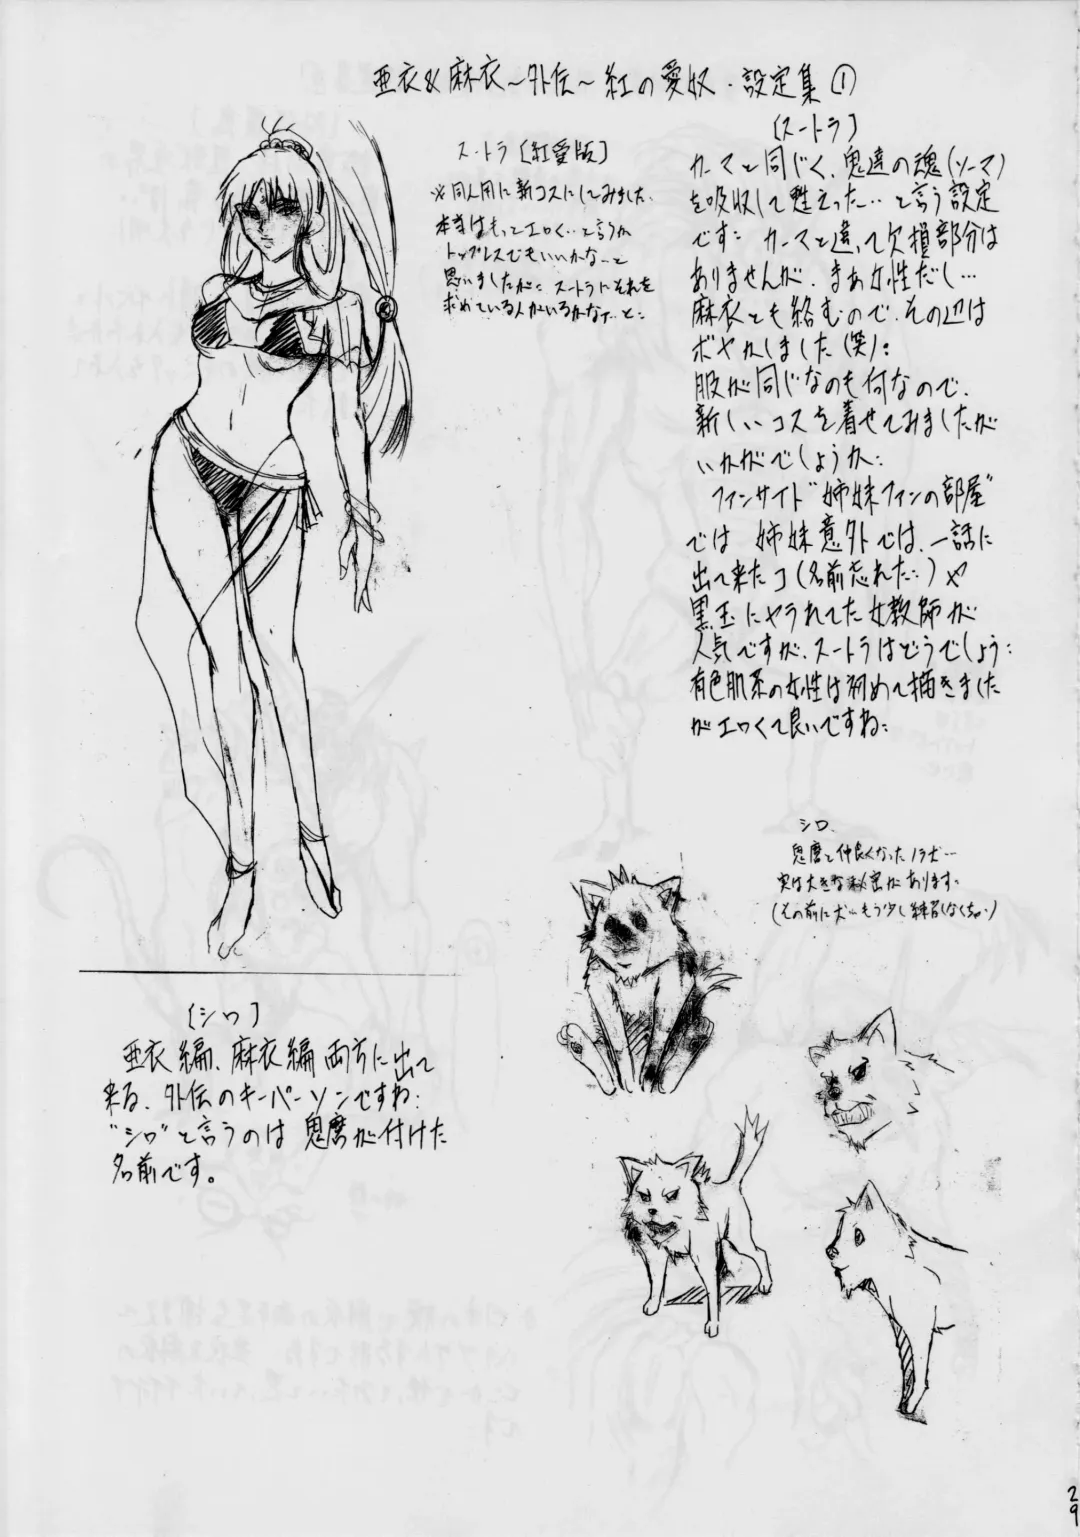 亜衣&麻衣～外伝～紅の愛奴・設定集①
スートラ〔紅愛版〕
※同人用に新コスにしてみました。
本当はもっとエロく…と言うか
トップレスでもいいかな…と
思いましたが… スートラにそれを
求めている人がいるかなァ…と…
〔スートラ〕
カーマと同じく、鬼達の魂(ソーマ)
を吸収して甦えった…と言う設定
です… カーマと違って欠損部分は
ありませんが、まあ女性だし…
麻衣とも絡むので、その辺は
ボヤかしました(笑)…
服が同じなのも何なので、
新しいコスを着せてみましたが
いかがでしょうか…
ファンサイト“姉妹ファンの部屋”
では 姉妹意外では、一話に
出て来たコ(名前忘れた…)や
黒玉にヤラれてた女教師が
人気ですが、スートラはどうでしょう…
有色肌系の女性は初めて描きました
がエロくて良いですね…
シロ
鬼麿と仲良くなったノラ犬…
実は大きな秘密があります。
(その前に犬…もう少し練習しなくちゃ…)
〔シロ〕
亜衣編、麻衣編両方に出て
来る、外伝のキーパーソンですね…
“シロ”と言うのは鬼麿が付けた
名前です。
29